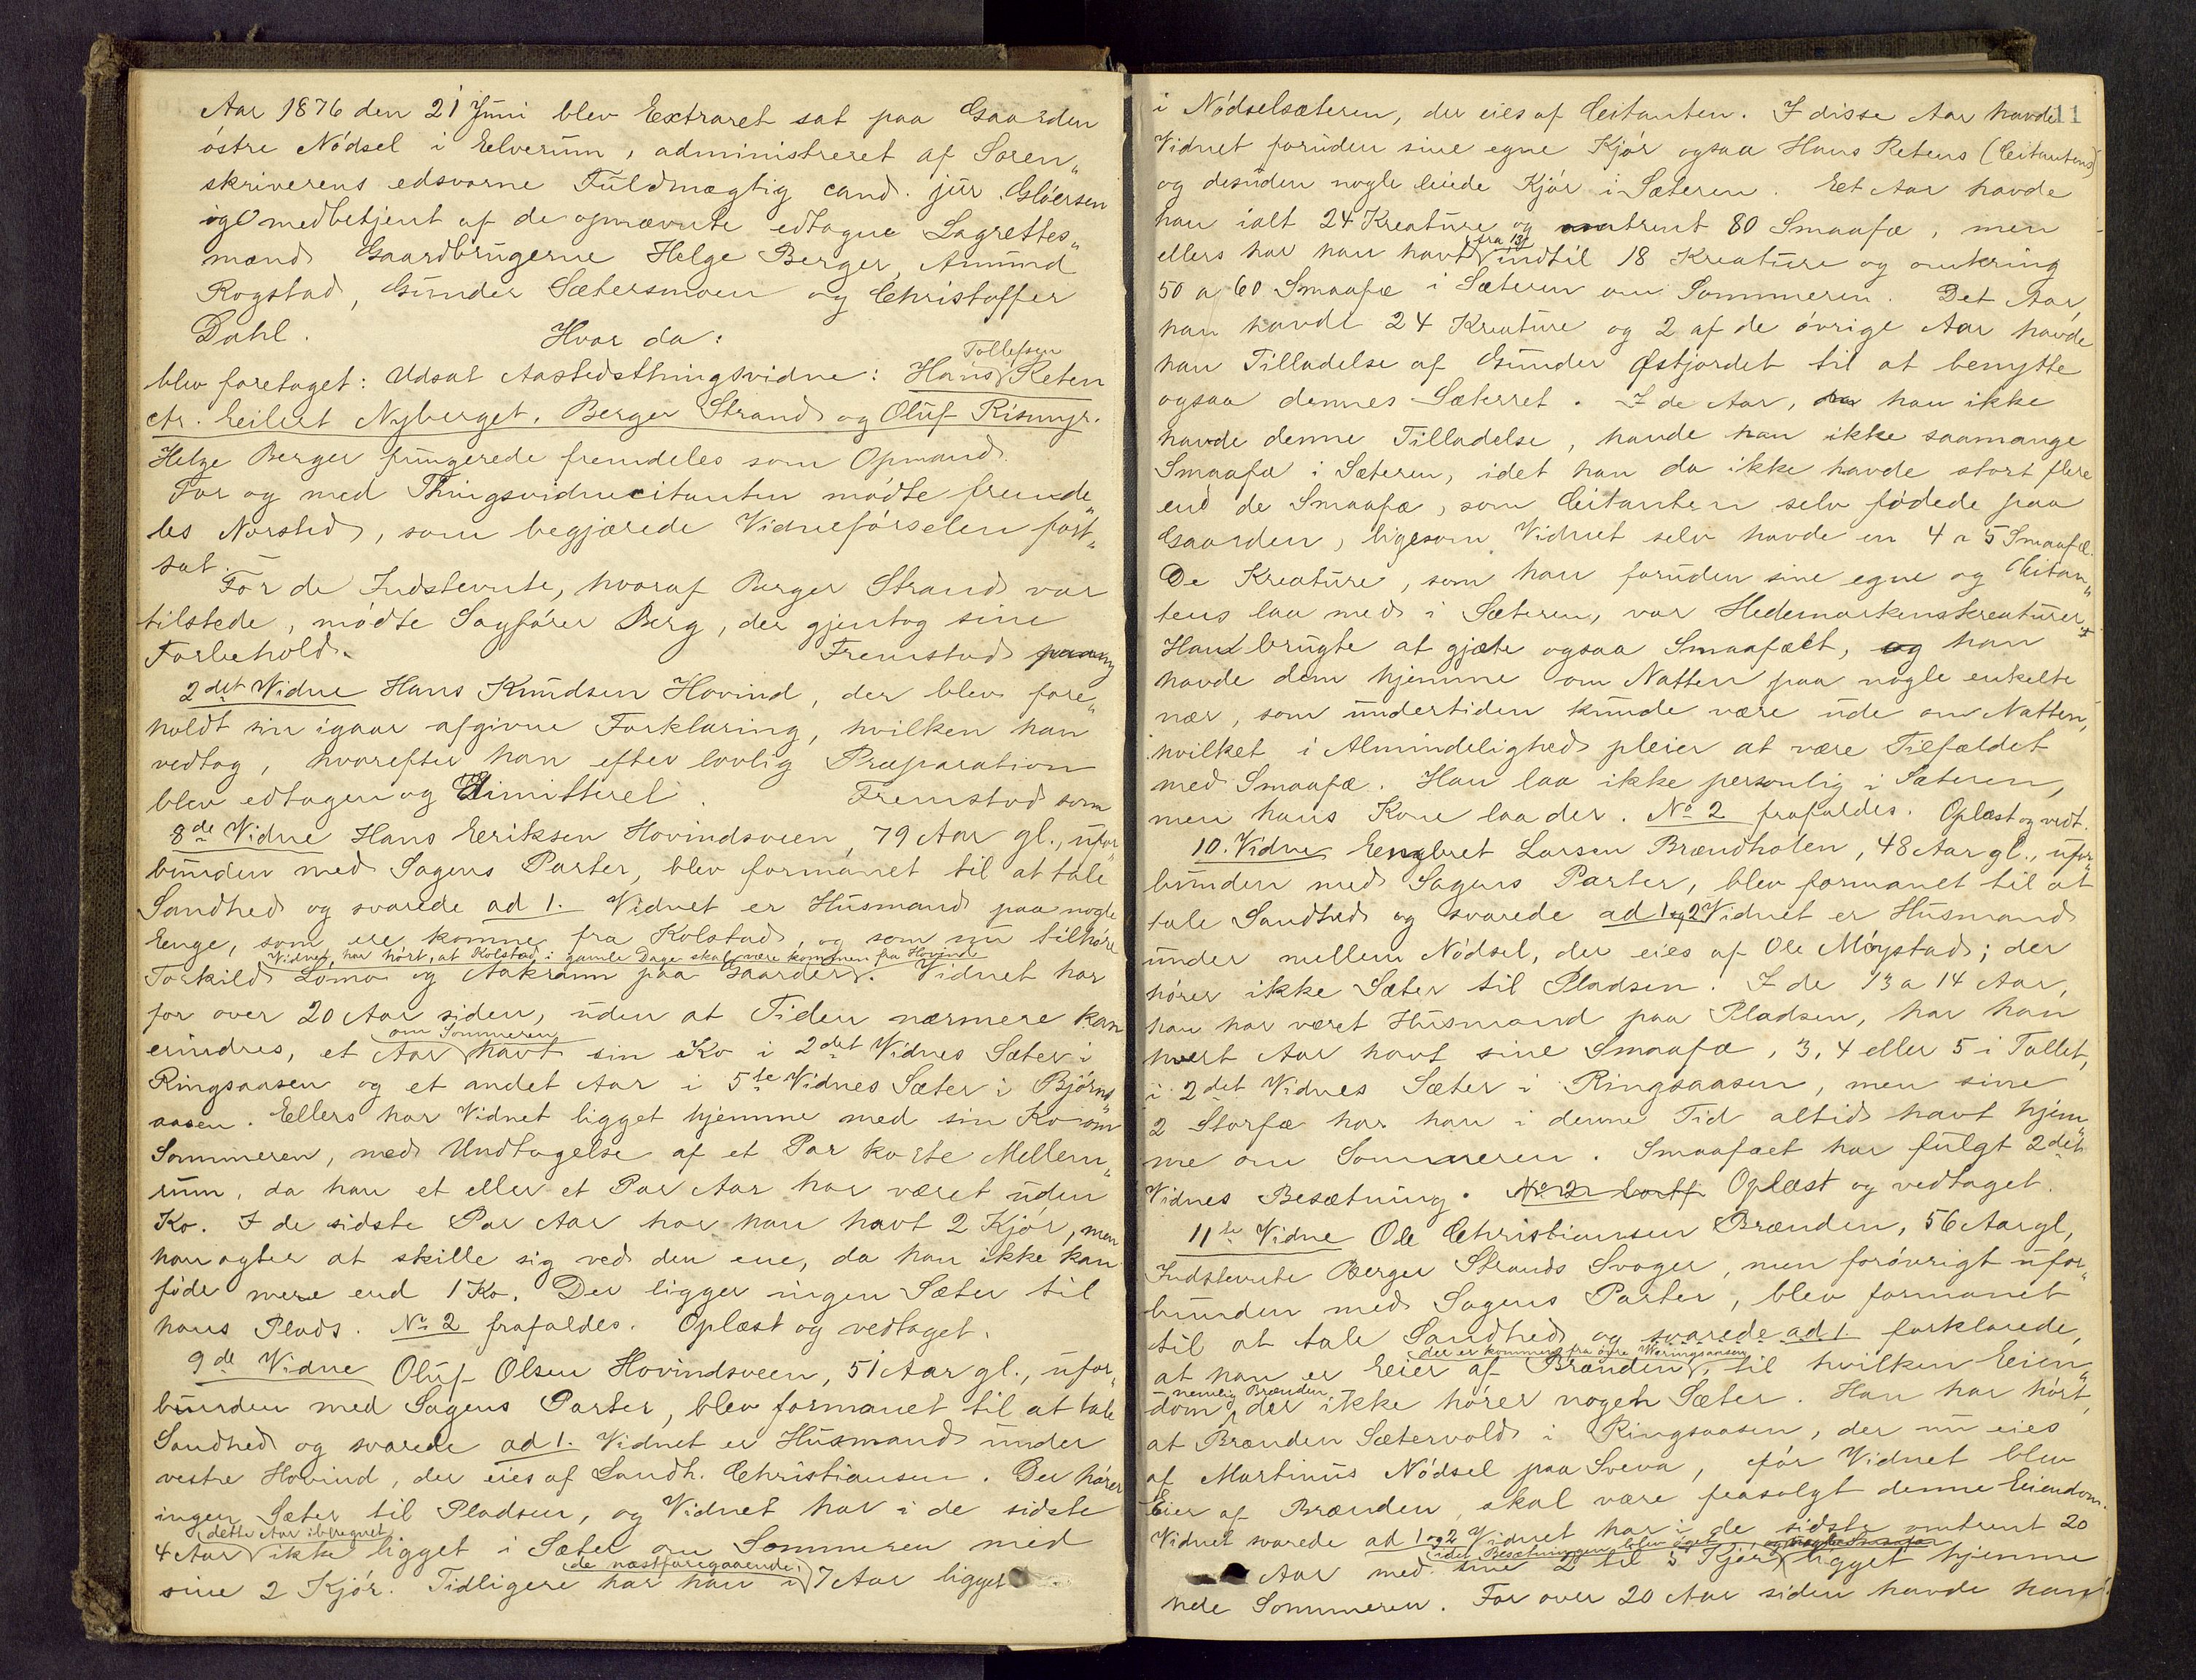 Aar 1876 den 21 Juni blev Extraret sat paa Gaarden
östre Nödsel i Elverum, administreret af Soren„
skriverens edsvorne Fuldmægtig cand. jur. Glöersen
og medbetjent af de opnævnte edtagne Lagrettes„
mænd Gaardbrugerne Helge Berger, Amund
Rogstad, Gunder Sætersmoen og Christoffer
Dahl. Hvor da:
Tollefsen
blev foretaget: Udsat Aastedsthingsvidne: Hans Reten
ctr. Eilert Nyberget, Berger Strand og Oluf Rismyr.
Helge Berger fungerede fremdeles som Opmand.
For og med Thingsvidnecitanten mödte fremde„
les Norsted, som begjærede Vidneförselen fort„
sat.
For de Indstevnte, hvoraf Berger Strand var
tilstede, mödte Sagförer Berg, der gjentog sine
Forbehold. Fremstod paany
2det Vidne Hans Knudsen Hovind, der blev fore„
holdt sin igaar afgivne Forklaring, hvilken han
vedtog, hvorefter han efter lovlig Præparation
blev edtagen og Dimitteret. Fremstod som
8de Vidne Hans Eriksen Hovindsveen, 79 Aar gl., ufor„
bunden med Sagens Parter, blev formanet til at tale
Sandhed og svarede ad 1. Vidnet er Husmand paa nogle
Enge, som ere komne fra Kolstad, og som nu tilhöre
Vidnet har hört, at Kolstad i gamle Dage skal være kommen fra Hovind
Torkild Lomo og Aakrann paa Gaarder. Vidnet har
for over 20 Aar siden, uden at Tiden nærmere kan
om Sommeren
erindres, et Aar havt sin Ko i 2det Vidnes Sæter i
Ringsaasen og et andet Aar i 5te Vidnes Sæter i Björns„
aasen. Ellers har Vidnet ligget hjemme med sin Ko om
Sommeren, med Undtagelse af et Par korte Mellem„
rum, da han et eller et Par Aar har været uden
Ko. I de sidste Par Aar har han havt 2 Kjör, men
han agter at skille sig ved den ene, da han ikke kan
föde mere end 1 Ko. Der ligger ingen Sæter til
hans Plads. No 2 frafaldes. Oplæst og vedtaget.
9de Vidne Oluf Olsen Hovindsveen, 51 Aar gl., ufor„
bunden med Sagens Parter, blev formanet til at tale
Sandhed og svarede ad 1. Vidnet er Husmand under
vestre Hovind, der eies af Landh. Christiansen. Der hörer
ingen Sæter til Pladsen, og Vidnet har i de sidste
dette Aar iberegnet
4 Aar ikke ligget i Sæter om Sommeren med
de næstforegaaende
sine 2 Kjör. Tidligere har han i 7 Aar ligget
11
i Nödselsæteren, der eies af Citanten. I disse Aar havde
Vidnet foruden sine egne Kjör ogsaa Hans Retens (Citantens)
og desuden nogle leiede Kjör i Sæteren. Et Aar havde
han ialt 24 Kreature og omtrent 80 Smaafæ, men
fra 13
ellers har han havt indtil 18 Kreature og omkring
50 a 60 Smaafæ i Sæteren om Sommeren. Det Aar,
han havde 24 Kreature og 2 af de övrige Aar havde
han Tilladelse af Gunder Østjordet til at benytte
ogsaa dennes Sæterret. I de Aar, da han ikke
havde denne Tilladelse, havde han ikke saamange
Smaafæ i Sæteren, idet han da ikke havde stort flere
end de Smaafæ, som Citanten selv födede paa
Gaarden, ligesom Vidnet selv havde en 4 a 5 Smaafæ.
De Kreature, som han foruden sine egne og Citan„
tens laa med i Sæteren, var Hedemarkenskreaturer
Han brugte at gjæte ogsaa Smaafæet, og han
havde dem hjemme om Natten paa nogle enkelte
nær, som undertiden kunde være ude om Natten,
hvilket i Almindelighed pleier at være Tilfældet
med Smaafæ. Han laa ikke personlig i Sæteren,
men hans Kone laa der. No 2 frafaldes. Oplæst og vedt.
10. Vidne Engebret Larsen Brændholen, 48 Aar gl., ufor„
bunden med Sagens Parter, blev formanet til at
tale Sandhed og svarede ad 1 og 2 Vidnet er Husmand
under mellem Nödsel, der eies af Ole Möystad; der
hörer ikke Sæter til Pladsen. I de 13 a 14 Aar,
han har været Husmand paa Pladsen, har han
hvert Aar havt sine Smaafæ, 3, 4 eller 5 i Tallet,
i 2det Vidnes Sæter i Ringsaasen, men sine
2 Storfæ har han i denne Tid altid havt hjem„
me om Sommeren. Smaafæet har fulgt 2det
Vidnes Besætning. No 2 bortf. Oplæst og vedtaget.
11te Vidne Ole Christiansen Brænden, 56 Aar gl,
Indstevnte Berger Strands Svoger, men forövrigt ufor„
bunden med Sagens Parter, blev formanet
til at tale Sandhed og svarede ad 1 forklarede,
der er kommen fra övre Væringsaasen
at han er Eier af Brænden, til hvilken Eien„
nemlig Brænden
dom der ikke hörer nogen Sæter. Han har hört,
at Brænden Sætervold i Ringsaasen, der nu eies
af Martinus Nödsel paa Sveva, för Vidnet blev
Eier af Brænden, skal være frasolgt denne Eiendom.
Vidnet svarede ad 1 og 2 Vidnet har i de sidste omtrent 20
idet Besætningen blev öget
Aar med sine 2 til 5 Kjör ligget hjemme
hele Sommeren. For over 20 Aar siden havde han